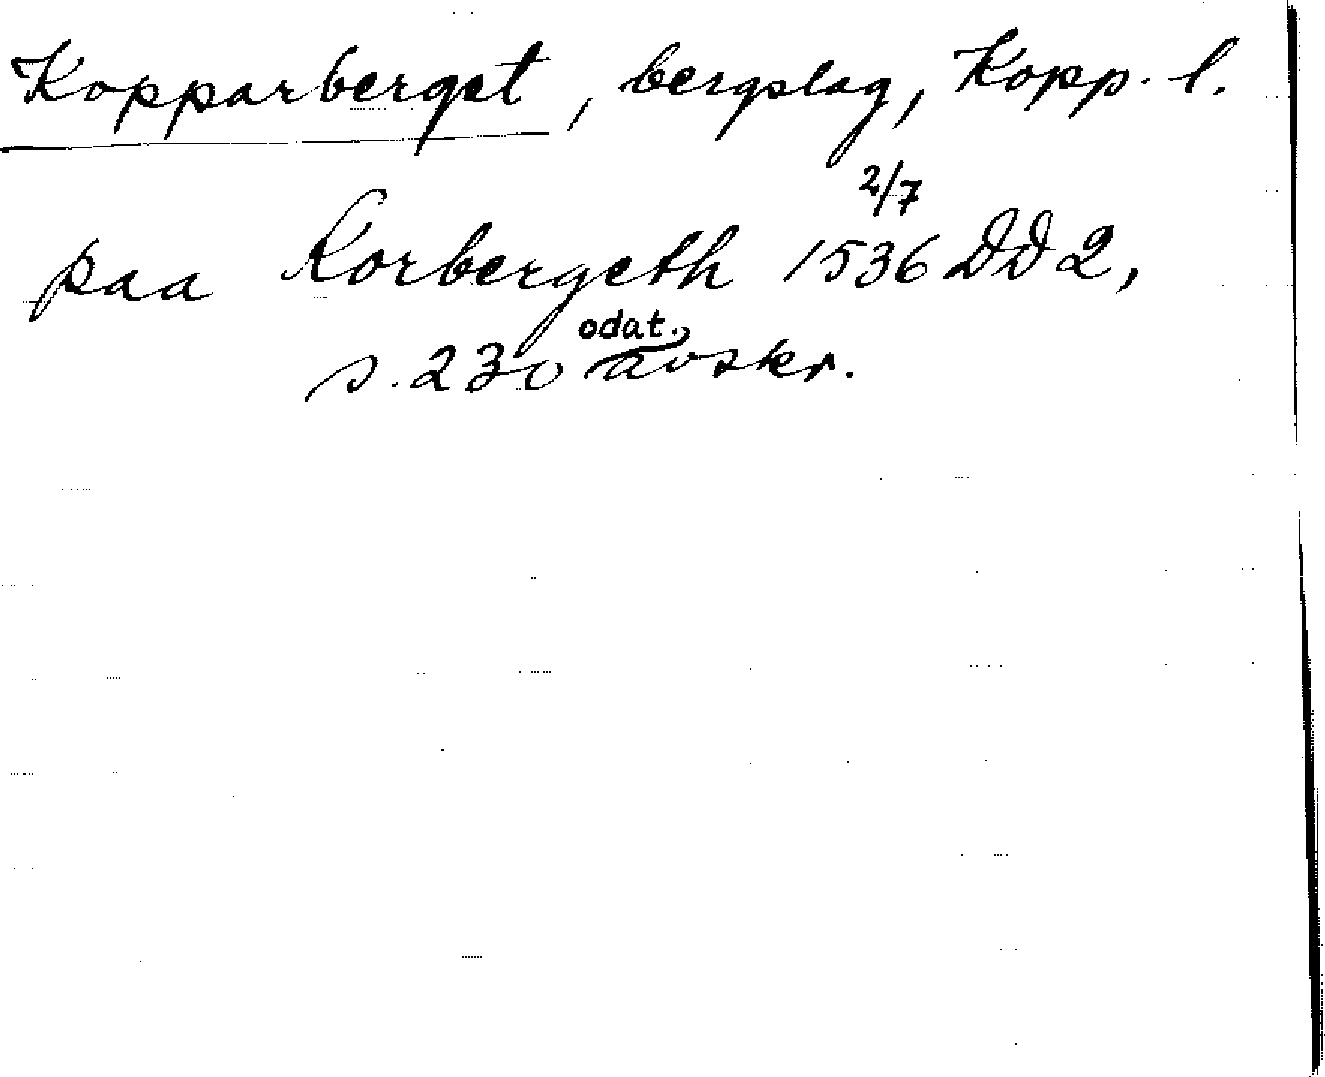 Kopparberget, bergslag, Kopp. l.
paa Korbergeth 1536 2/7 DD 2,
s. 230 odat. avskr.